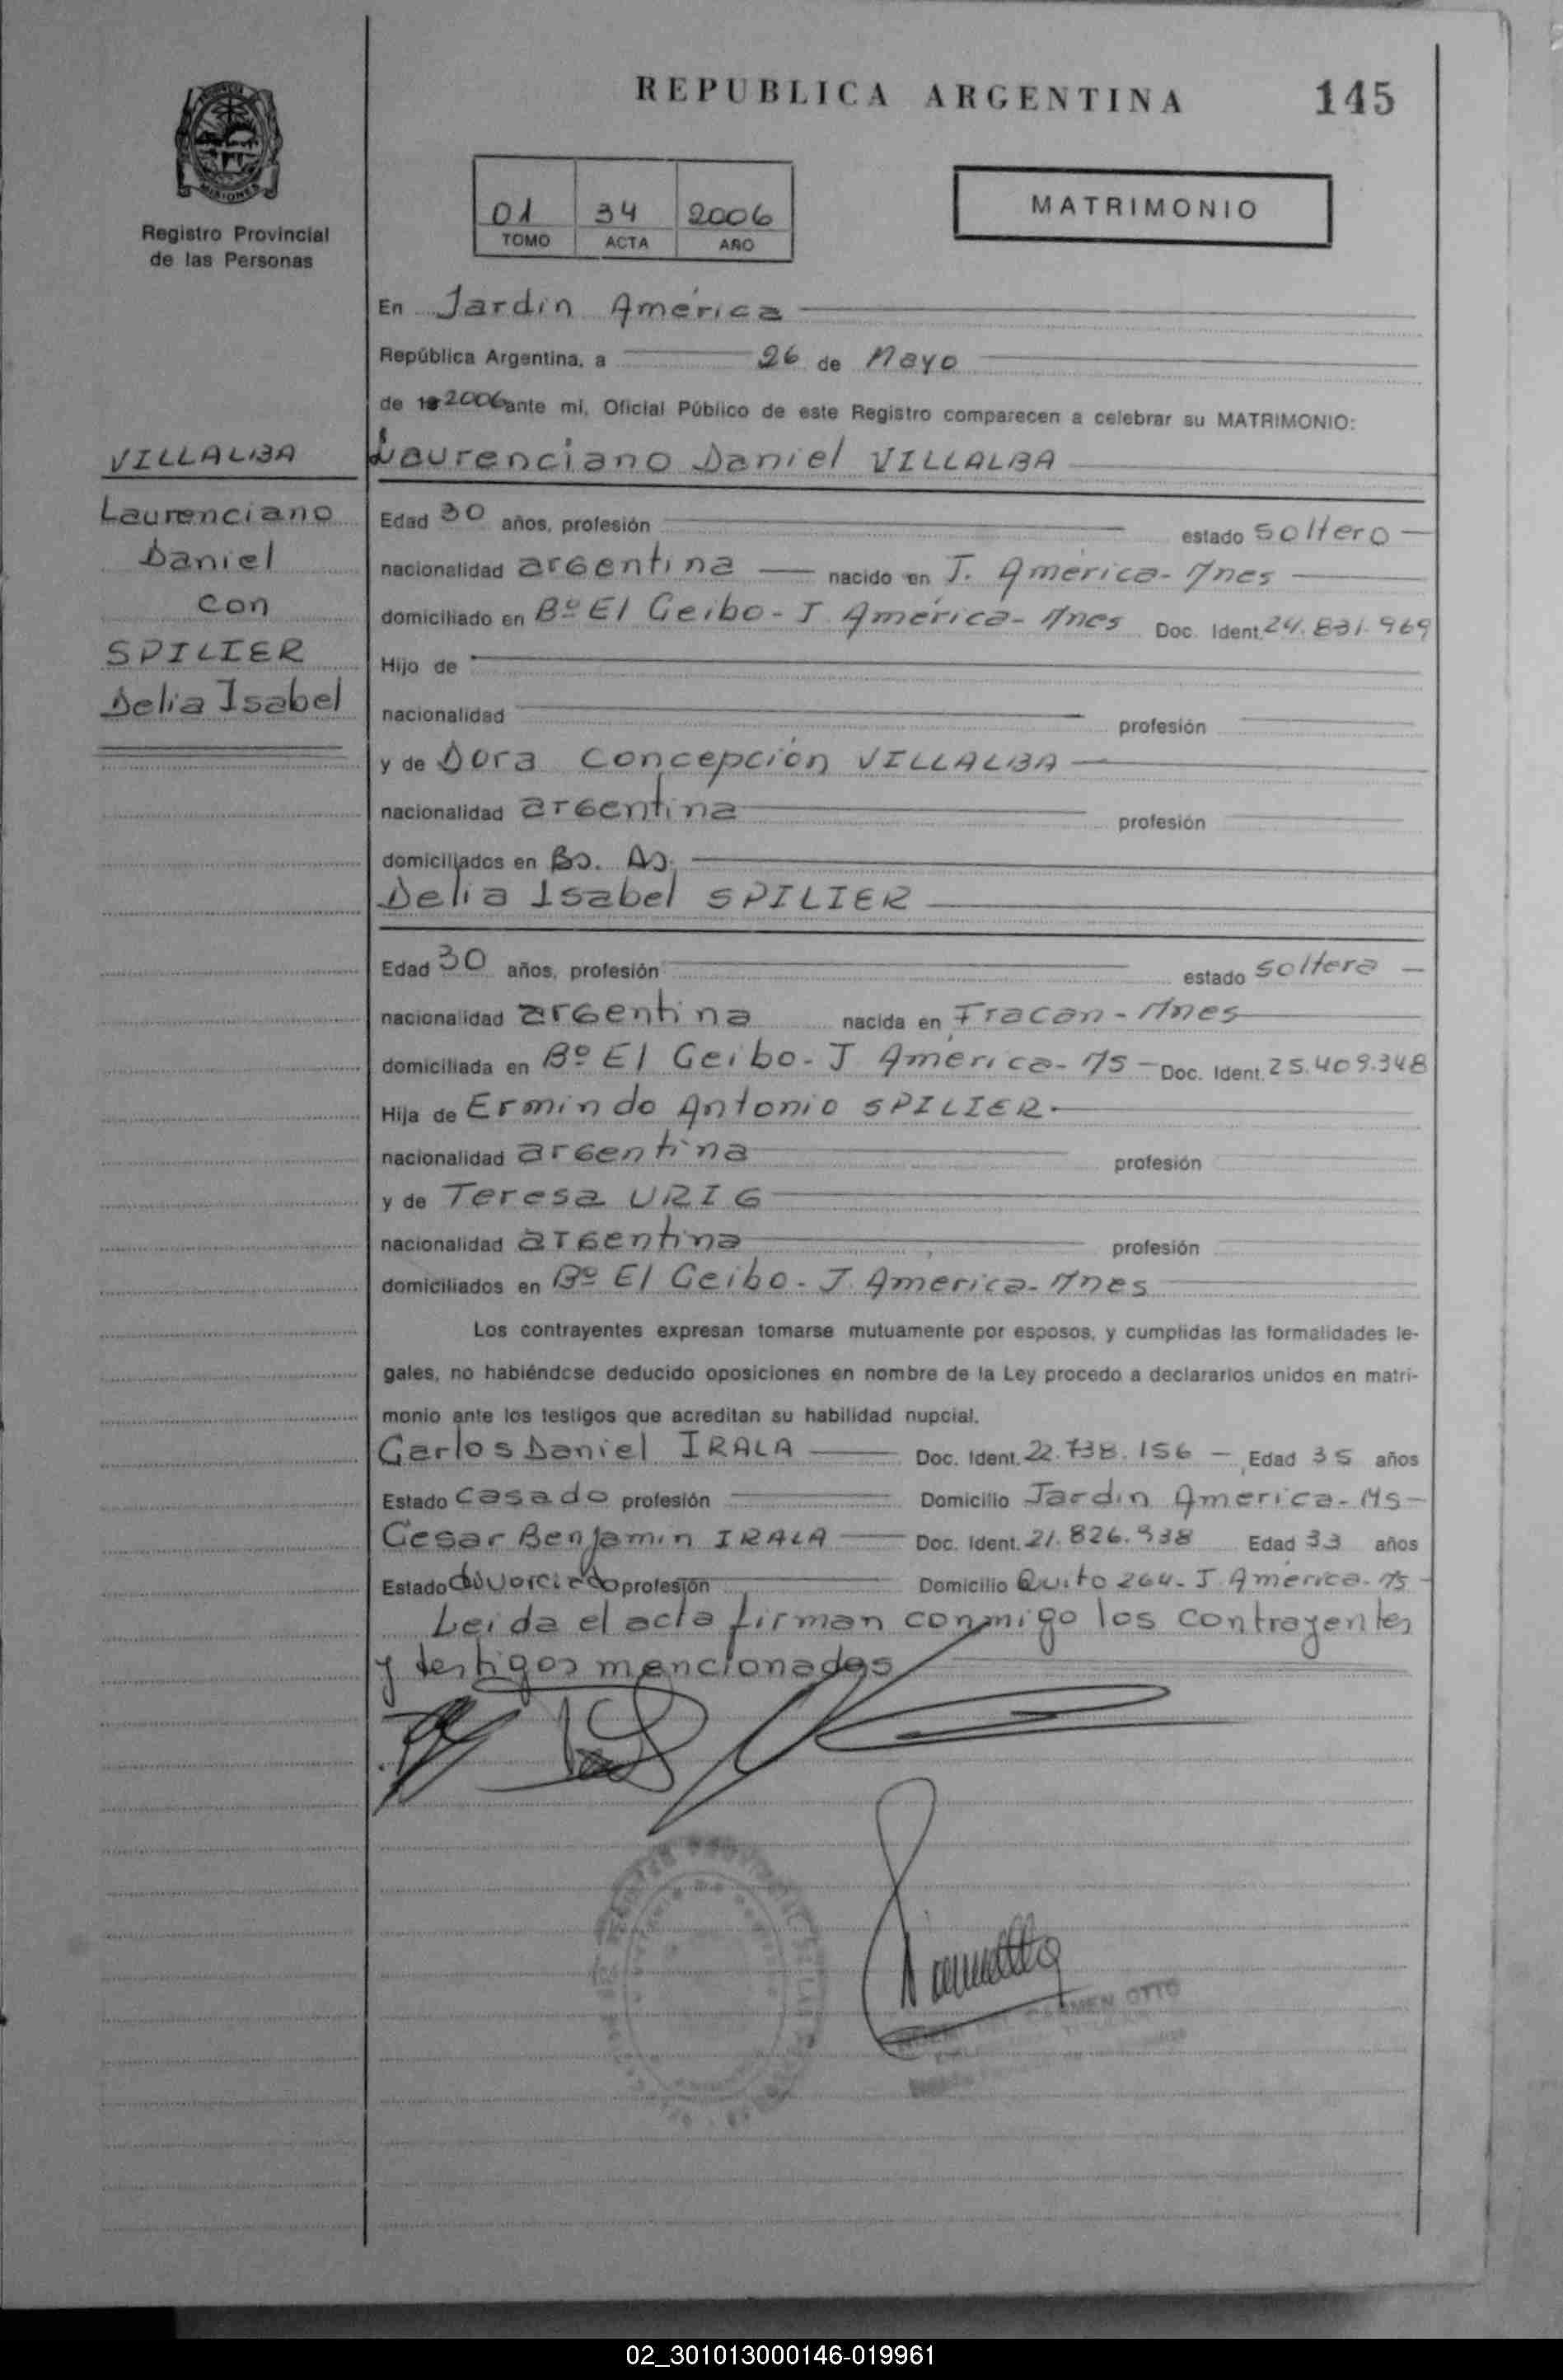 REPUBLICA ARGENTINA
145
MISIONES
Registro Provincial
de las Personas
01 34 2006
TOMO ACTA AÑO
MATRIMONIO
En Jardin América
República Argentina, a 26 de Mayo
de 19 2006 ante mí, Oficial Público de este Registro comparecen a celebrar su MATRIMONIO:
VILLALBA
Laurenciano
Daniel
con
SPILIER
Delia Isabel
Laurenciano Daniel VILLALBA
Edad 30 años, profesión estado soltero
nacionalidad argentina nacido en J. América - Mnes
domiciliado en Bº El Ceibo - J. América - Mnes Doc. Ident. 24.831.969
Hijo de
nacionalidad profesión
y de Dora Concepción VILLALBA
nacionalidad argentina profesión
domiciliados en Bs. As.
Delia Isabel SPILIER
Edad 30 años, profesión estado soltera
nacionalidad argentina nacida en Fracan - Mnes
domiciliada en Bº El Ceibo - J América - Ms - Doc. Ident. 25.409.348
Hija de Ermindo Antonio SPILIER.
nacionalidad argentina profesión
y de Teresa URIG
nacionalidad argentina profesión
domiciliados en Bº El Ceibo - J. América - Mnes
Los contrayentes expresan tomarse mutuamente por esposos, y cumplidas las formalidades le-
gales, no habiéndose deducido oposiciones en nombre de la Ley procedo a declararlos unidos en matri-
monio ante los testigos que acreditan su habilidad nupcial.
Carlos Daniel IRALA Doc. Ident. 22.738.156 - Edad 35 años
Estado casado profesión Domicilio Jardin America - Ms -
Cesar Benjamin IRALA Doc. Ident. 21.826.938 Edad 33 años
Estado divorciado profesión Domicilio Quito 264 - J. América - Ms -
Leida el acta firman conmigo los contrayentes
y testigos mencionados
CARMEN OTTO
02_301013000146-019961